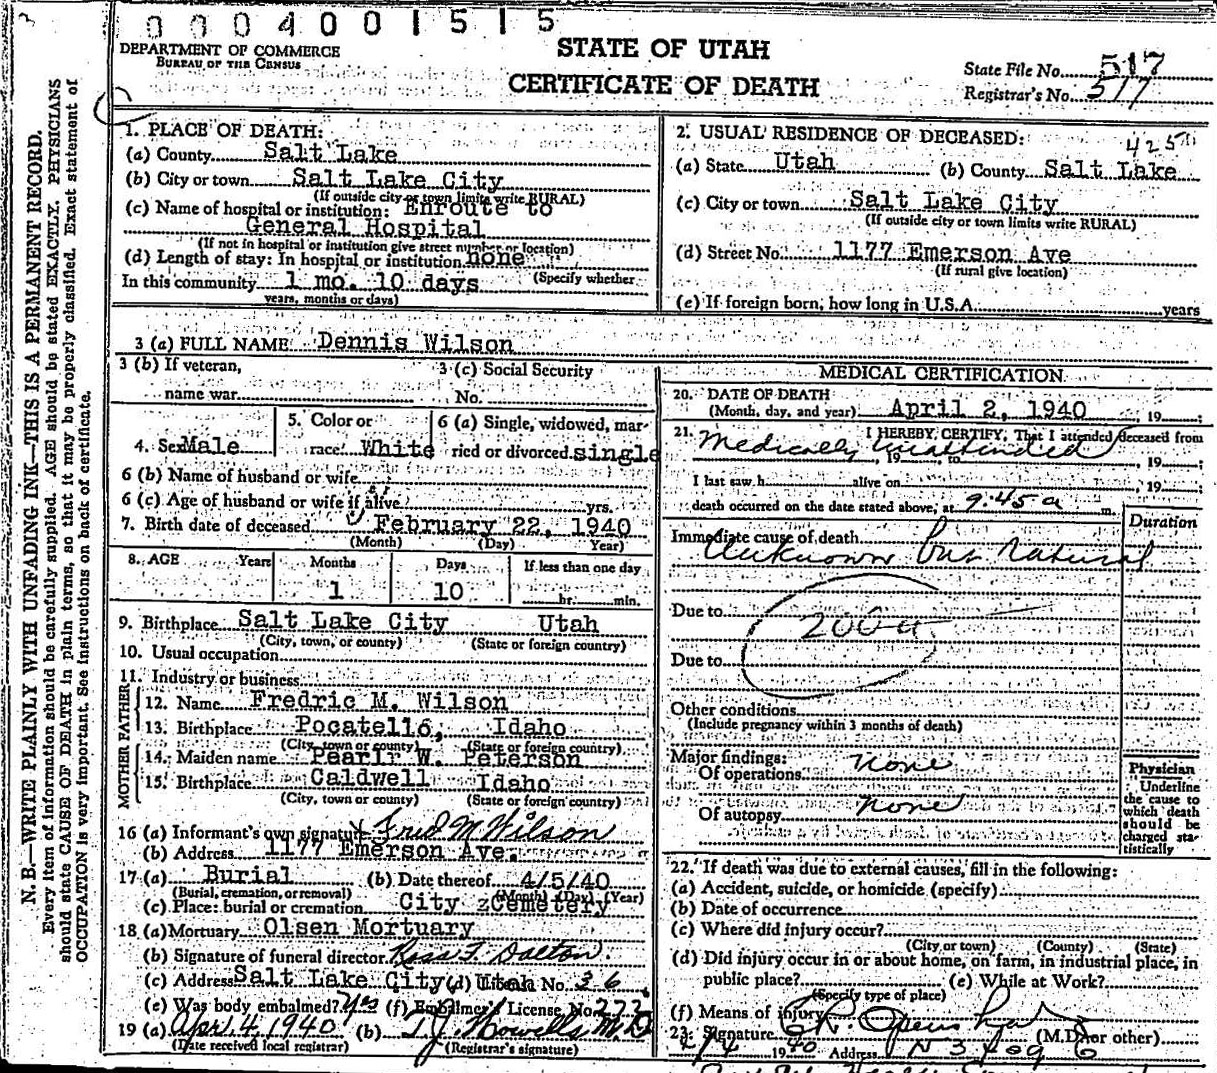 0004001515
DEPARTMENT OF COMMERCE
BUREAU OF THE CENSUS
STATE OF UTAH
CERTIFICATE OF DEATH
State File No. 517
Registrar's No. 517
N. B.—WRITE PLAINLY WITH UNFADING INK—THIS IS A PERMANENT RECORD.
Every item of information should be carefully supplied. AGE should be stated EXACTLY. PHYSICIANS
should state CAUSE OF DEATH in plain terms, so that it may be properly classified. Exact statement of
OCCUPATION is very important. See instructions on back of certificate.
1. PLACE OF DEATH:
(a) County Salt Lake
(b) City or town Salt Lake City
(If outside city or town limits write RURAL)
(c) Name of hospital or institution: Enroute to
General Hospital
(If not in hospital or institution give street number or location)
(d) Length of stay: In hospital or institution none
(Specify whether
In this community 1 mo. 10 days
years, months or days)
2. USUAL RESIDENCE OF DECEASED:
425
(a) State Utah (b) County Salt Lake
(c) City or town Salt Lake City
(If outside city or town limits write RURAL)
(d) Street No. 1177 Emerson Ave
(If rural give location)
(e) If foreign born, how long in U.S.A. years
3 (a) FULL NAME Dennis Wilson
3 (b) If veteran,
name war
3 (c) Social Security
No.
4. Sex Male
5. Color or
race White
6 (a) Single, widowed, mar-
ried or divorced single
6 (b) Name of husband or wife
6 (c) Age of husband or wife if alive yrs.
7. Birth date of deceased February 22, 1940
(Month) (Day) Year)
8. AGE Years Months Days If less than one day
1 10 hr. min.
9. Birthplace Salt Lake City Utah
(City, town, or county) (State or foreign country)
10. Usual occupation
11. Industry or business
FATHER
12. Name Fredric M. Wilson
13. Birthplace Pocatello, Idaho
(City, town or county) (State or foreign country)
MOTHER
14. Maiden name Pearlr W. Peterson
15. Birthplace Caldwell Idaho
(City, town or county) (State or foreign country)
16 (a) Informant's own signature x Fred M Wilson
(b) Address 1177 Emerson Ave.
17 (a) Burial (b) Date thereof 4/5/40
(Burial, cremation, or removal) (Month) (Day) (Year)
(c) Place: burial or cremation City zCemetery
18 (a) Mortuary Olsen Mortuary
(b) Signature of funeral director Ross F. Dalton.
(c) Address Salt Lake City, Utah No. 36
(e) Was body embalmed? Yes (f) Embalmer License No. 273
19 (a) Apr 4, 1940 (b) T.J. Howells M.D
(Date received local registrar) (Registrar's signature)
MEDICAL CERTIFICATION
20. DATE OF DEATH
(Month, day, and year) April 2, 1940, 19 ;
21. I HEREBY CERTIFY, That I attended deceased from
Medically Unattended
, 19 to , 19 ;
I last saw h alive on , 19 ;
death occurred on the date stated above, at 9:45 a m.
Duration
Immediate cause of death
Unknown but Natural
Due to
200a
Due to
Other conditions
(Include pregnancy within 3 months of death)
Major findings:
Of operations none
Of autopsy none
Physician
Underline
the cause to
which death
should be
charged sta-
tistically
22. If death was due to external causes, fill in the following:
(a) Accident, suicide, or homicide (specify)
(b) Date of occurrence
(c) Where did injury occur?
(City or town) (County) (State)
(d) Did injury occur in or about home, on farm, in industrial place, in
public place? (e) While at Work?
(Specify type of place)
(f) Means of injury
23. Signature (M.D. or other)
4/4 1940 Address